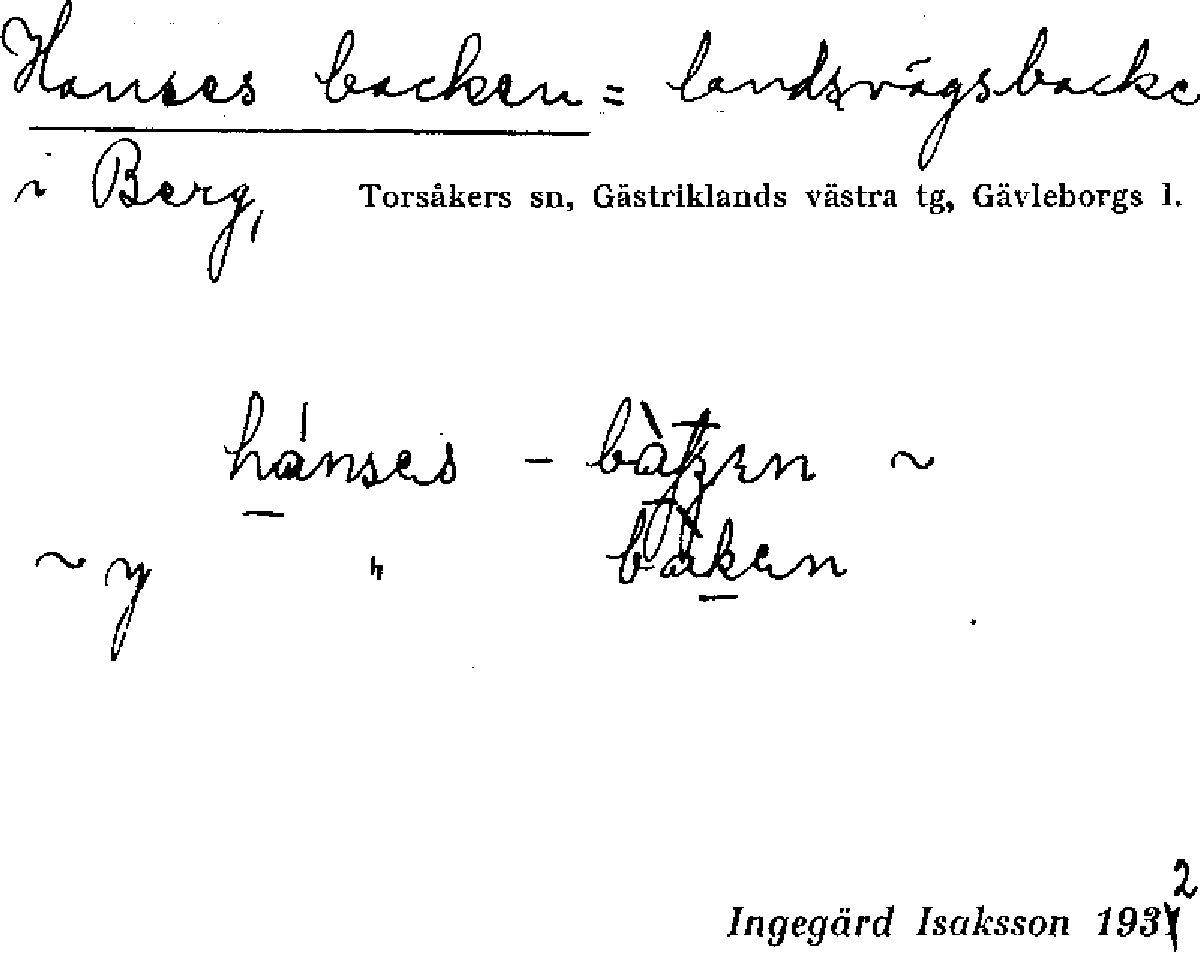 Hanses backen = landsvägsbacke
i Berg, Torsåkers sn, Gästriklands västra tg, Gävleborgs l.
hánses - ~
~ y " bàken
2
Ingegärd Isaksson 193